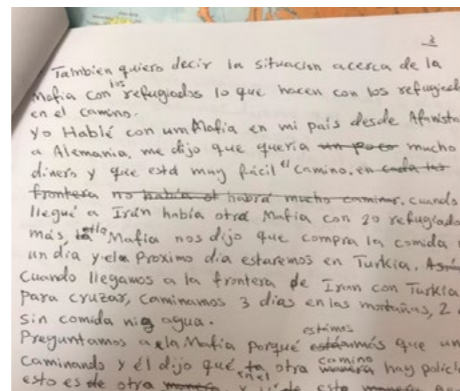 3
Tambien quiero decir la situacion acerca de la
Mafia con los refugiados lo que hacen con los refugiados
en el camino.
Yo Hablé con una Mafia en mi país desde Afanista
a Alemania, me dijo que quería un poco mucho
dinero y que está muy fácil el camino, en cada las
frontera no había habrá mucho caminar, cuando
llegué a Irán había otra Mafia con 20 refugiado
más la ella Mafia nos dijo que compra la comida
un día y el Proximo dia estaremos en Turkia.
Cuando llegamos a la frontera de Iran con Turkia
Para cruzar, caminamos 3 dias en las montañas, 2
sin comida ni agua.
Preguntamos a la Mafia Porqué estámos más que un
Caminando y él dijo que en el otra camino hay polici
esto es de otra